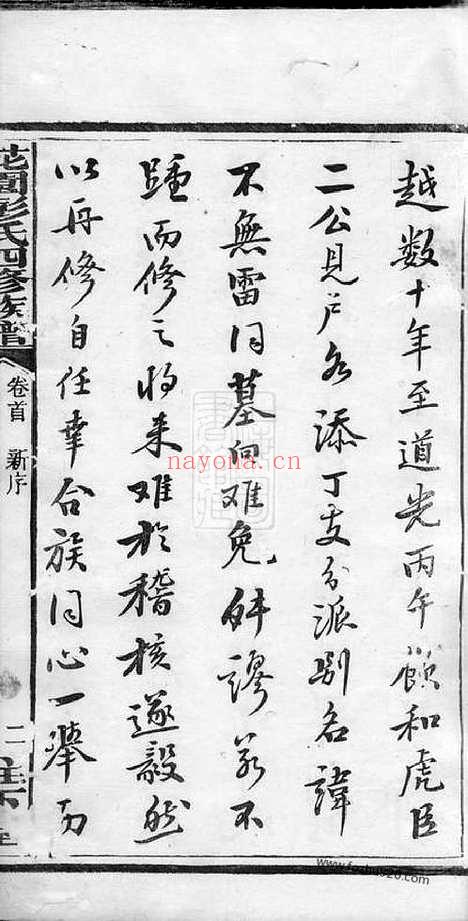 越数十年至道光丙午和虎臣
二公見户各添丁支分派别名諱
不無雷同墓向難免舛謬若不
踵而修之将来難於稽核遂毅然
以再修自任幸合族同心一舉而
花園彭氏四修族譜
卷首 新序
二
nayona.cn